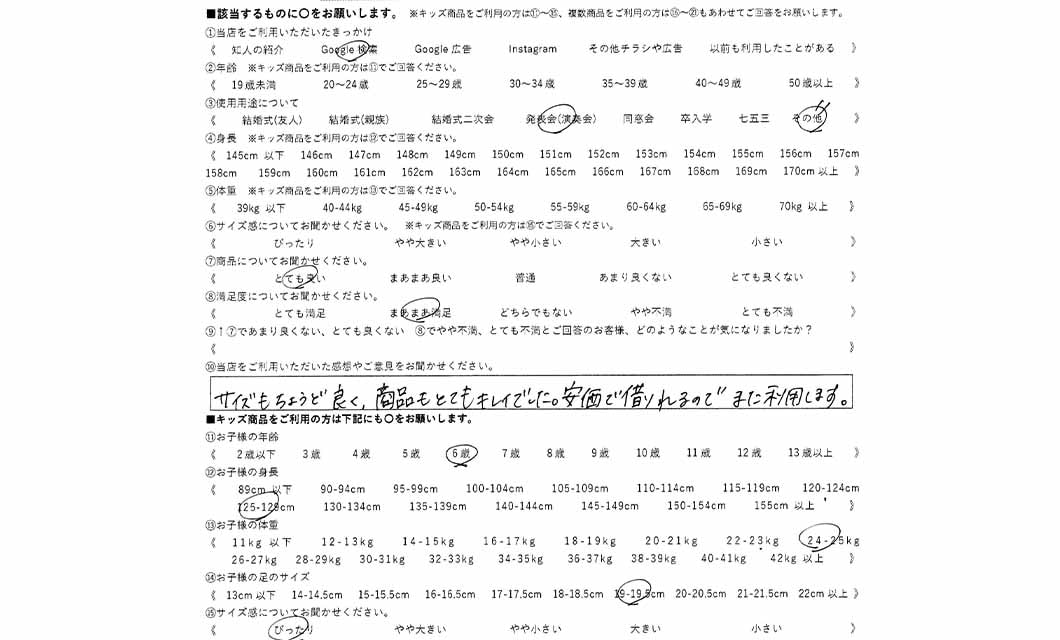 ■該当するものに〇をお願いします。 ※キッズ商品をご利用の方は⑪~⑮、複数商品をご利用の方は⑯~㉑もあわせてご回答をお願いします。
①当店をご利用いただいたきっかけ
《 知人の紹介 Google 検索 Google 広告 Instagram その他チラシや広告 以前も利用したことがある 》
②年齢 ※キッズ商品をご利用の方は⑪でご回答ください。
《 19歳未満 20〜24歳 25〜29歳 30〜34歳 35〜39歳 40〜49歳 50歳以上 》
③使用用途について
《 結婚式(友人) 結婚式(親族) 結婚式二次会 発表会(演奏会) 同窓会 卒入学 七五三 その他 》
④身長 ※キッズ商品をご利用の方は⑫でご回答ください。
《 145cm 以下 146cm 147cm 148cm 149cm 150cm 151cm 152cm 153cm 154cm 155cm 156cm 157cm
158cm 159cm 160cm 161cm 162cm 163cm 164cm 165cm 166cm 167cm 168cm 169cm 170cm 以上 》
⑤体重 ※キッズ商品をご利用の方は⑬でご回答ください。
《 39kg 以下 40-44kg 45-49kg 50-54kg 55-59kg 60-64kg 65-69kg 70kg 以上 》
⑥サイズ感についてお聞かせください。 ※キッズ商品をご利用の方は⑮でご回答ください。
《 ぴったり やや大きい やや小さい 大きい 小さい 》
⑦商品についてお聞かせください。
《 とても良い まあまあ良い 普通 あまり良くない とても良くない 》
⑧満足度についてお聞かせください。
《 とても満足 まあまあ満足 どちらでもない やや不満 とても不満 》
⑨↑⑦であまり良くない、とても良くない ⑧でやや不満、とても不満とご回答のお客様、どのようなことが気になりましたか？
《 》
⑩当店をご利用いただいた感想やご意見をお聞かせください。
サイズもちょうど良く、商品もとてもキレイでした。安価で借りれるのでまた利用します。
■キッズ商品をご利用の方は下記にも〇をお願いします。
⑪お子様の年齢
《 2歳以下 3歳 4歳 5歳 6歳 7歳 8歳 9歳 10歳 11歳 12歳 13歳以上 》
⑫お子様の身長
《 89cm 以下 90-94cm 95-99cm 100-104cm 105-109cm 110-114cm 115-119cm 120-124cm
125-129cm 130-134cm 135-139cm 140-144cm 145-149cm 150-154cm 155cm 以上 》
⑬お子様の体重
《 11kg 以下 12-13kg 14-15kg 16-17kg 18-19kg 20-21kg 22-23kg 24-25kg
26-27kg 28-29kg 30-31kg 32-33kg 34-35kg 36-37kg 38-39kg 40-41kg 42kg 以上 》
⑭お子様の足のサイズ
《 13cm 以下 14-14.5cm 15-15.5cm 16-16.5cm 17-17.5cm 18-18.5cm 19-19.5cm 20-20.5cm 21-21.5cm 22cm 以上 》
⑮サイズ感についてお聞かせください。
《 ぴったり やや大きい やや小さい 大きい 小さい 》